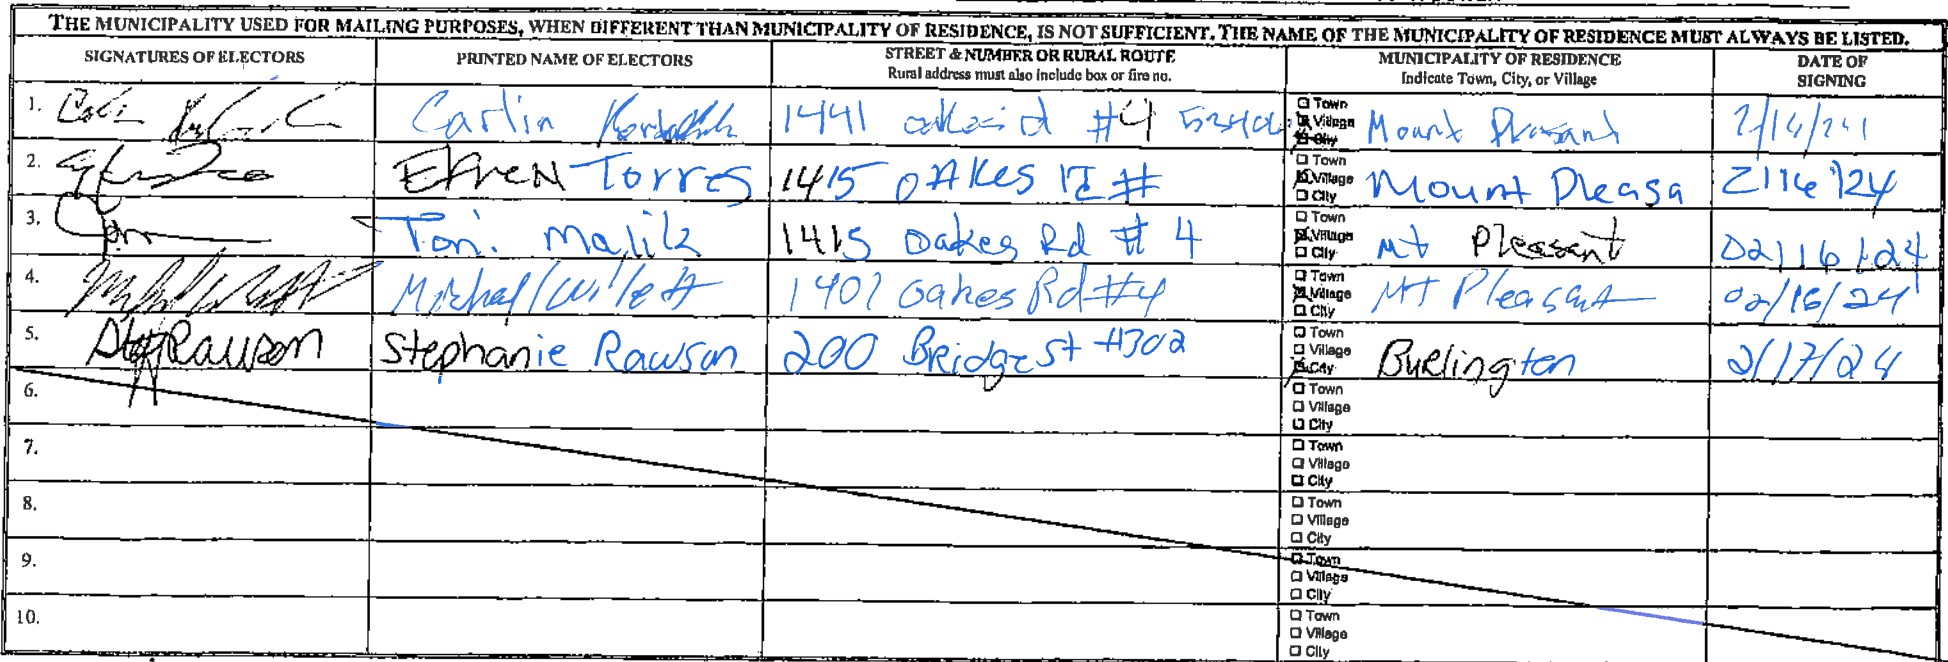 THE MUNICIPALITY USED FOR MAILING PURPOSES, WHEN DIFFERENT THAN MUNICIPALITY OF RESIDENCE, IS NOT SUFFICIENT. THE NAME OF THE MUNICIPALITY OF RESIDENCE MUST ALWAYS BE LISTED.
SIGNATURES OF ELECTORS PRINTED NAME OF ELECTORS STREET & NUMBER OR RURAL ROUTE MUNICIPALITY OF RESIDENCE DATE OF
Rural address must also include box or fire no. Indicate Town, City, or Village SIGNING
1. Carlin 1441 #4 Town Village City Mount Pleasant
2. Efren Torres 1415 OAKES # Town Village City Mount Pleasa 2/16/24
3. Toni Malik 1415 Oakes Rd # 4 Town Village City Mt Pleasant 02/16/24
4. Michael Willett 1401 Oakes Rd #4 Town Village City MT Pleasant 02/16/24
5. Step Rawson Stephanie Rawson 200 Bridge St #302 Town Village City Burlington 2/17/24
6. Town Village City
7. Town Village City
8. Town Village City
9. Town Village City
10. Town Village City